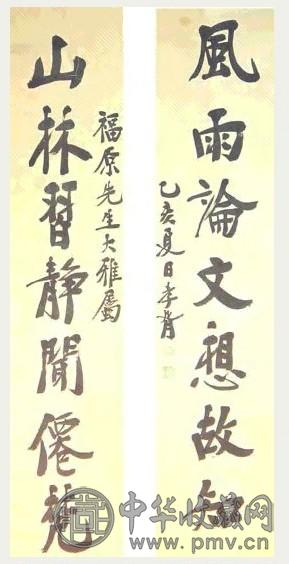 風雨論文想故知
乙亥夏日孝胥
福原先生大雅屬
山林習靜聞僊
中华收藏网
www.pmv.cn